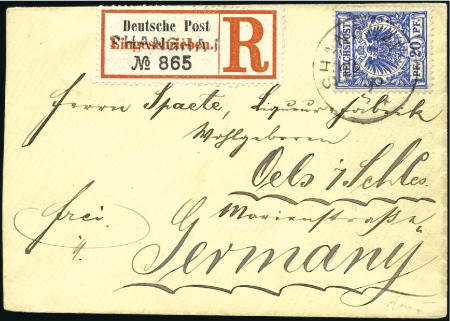 Deutsche Post
SHANGHAI
Eingeschrieben.
№ 865
R
REICHSPOST
20 PF.
PF. 20
SHANGHAI
Herrn Spaete, Liqueur Fabrik
Wohlgeboren
Oels i/Schles.
Marienstraße
frei
Germany